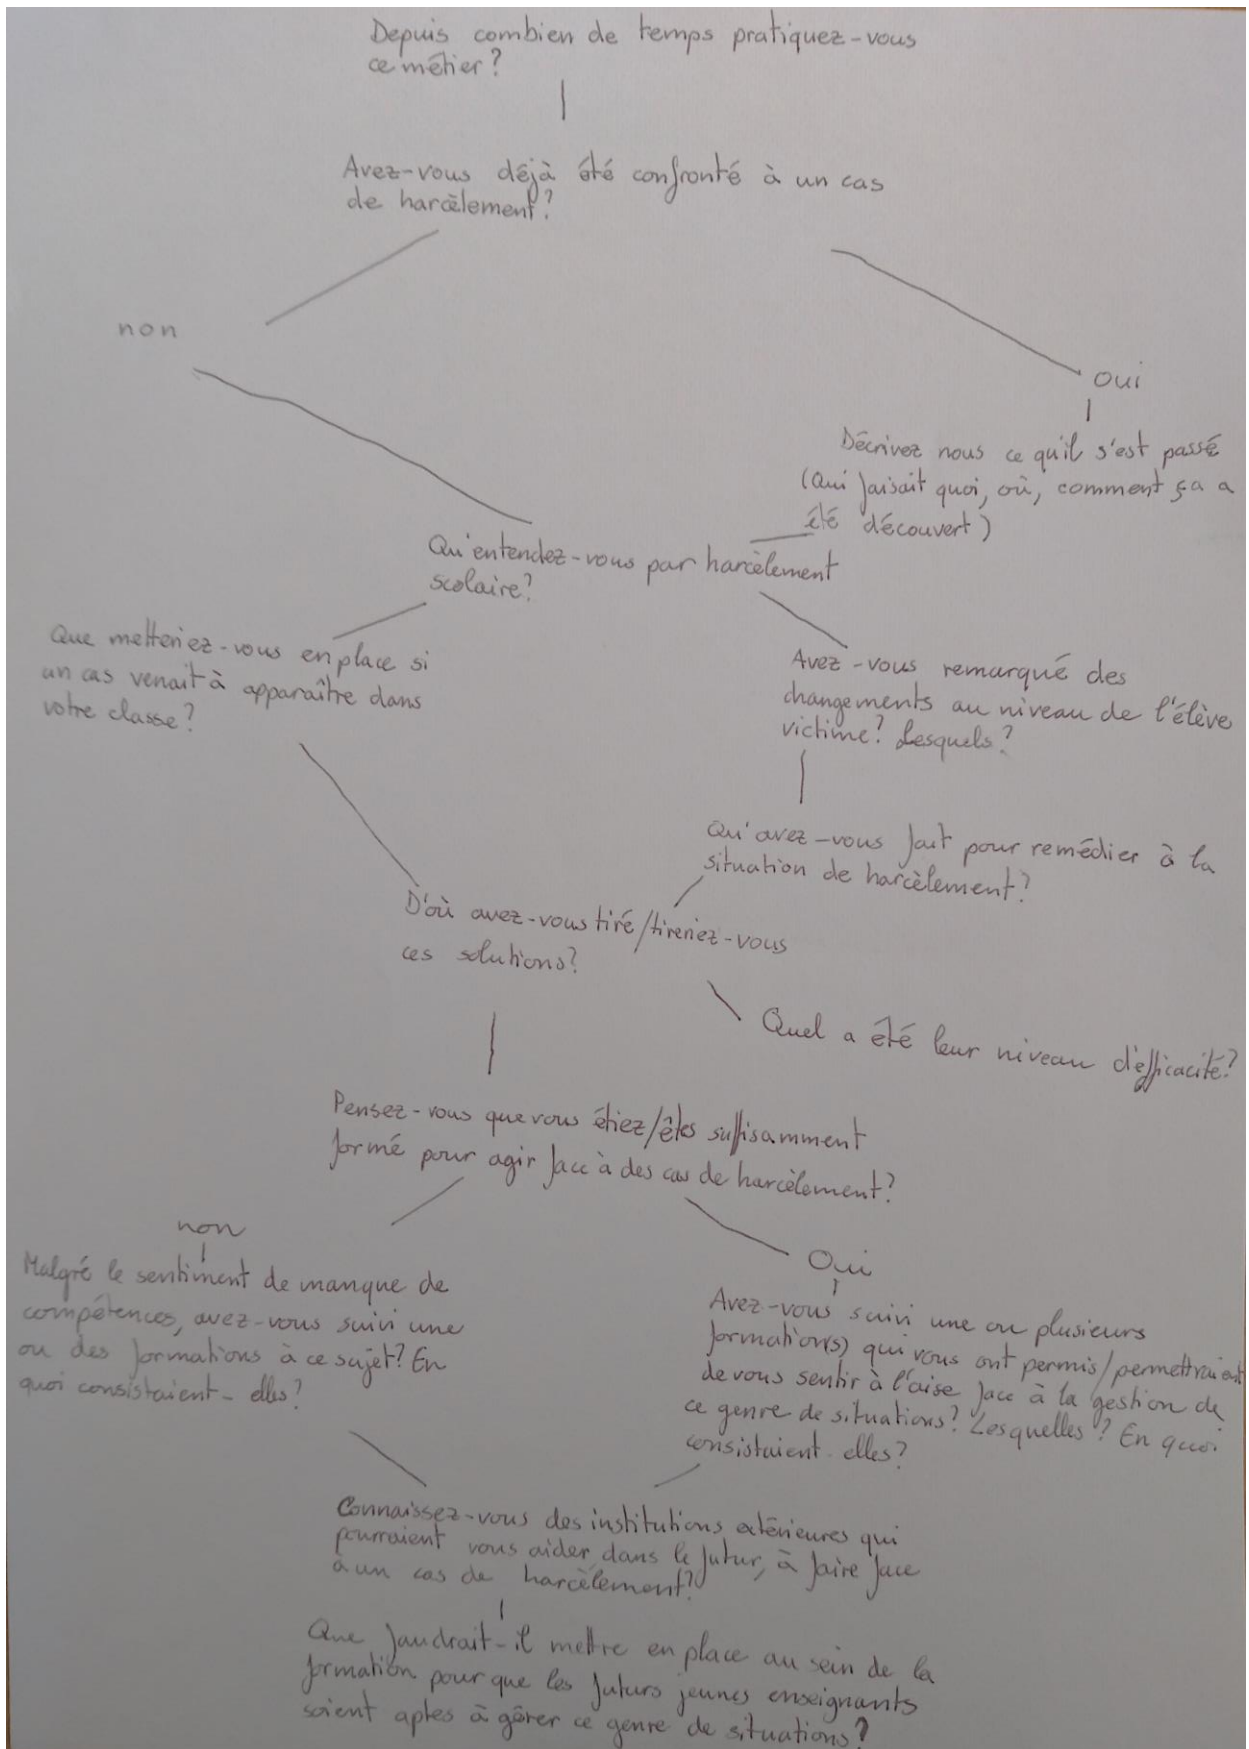 Depuis combien de temps pratiquez-vous
ce métier?
Avez-vous déjà été confronté à un cas
de harcèlement?
non
oui
Décrivez nous ce qu'il s'est passé
(Qui faisait quoi, où, comment ça a
été découvert)
Qu'entendez-vous par harcèlement
scolaire?
Que metteriez-vous en place si
un cas venait à apparaître dans
votre classe?
Avez-vous remarqué des
changements au niveau de l'élève
victime? Lesquels?
Qu'avez-vous fait pour remédier à la
situation de harcèlement?
D'où avez-vous tiré/tireriez-vous
ces solutions?
Quel a été leur niveau d'efficacité?
Pensez-vous que vous étiez/êtes suffisamment
formé pour agir face à des cas de harcèlement?
non
Malgré le sentiment de manque de
compétences, avez-vous suivi une
ou des formations à ce sujet? En
quoi consistaient-elles?
Oui
Avez-vous suivi une ou plusieurs
formation(s) qui vous ont permis/permettraient
de vous sentir à l'aise face à la gestion de
ce genre de situations? Lesquelles? En quoi
consistaient-elles?
Connaissez-vous des institutions extérieures qui
pourraient vous aider, dans le futur, à faire face
à un cas de harcèlement?
Que faudrait-il mettre en place au sein de la
formation pour que les futurs jeunes enseignants
soient aptes à gérer ce genre de situations?